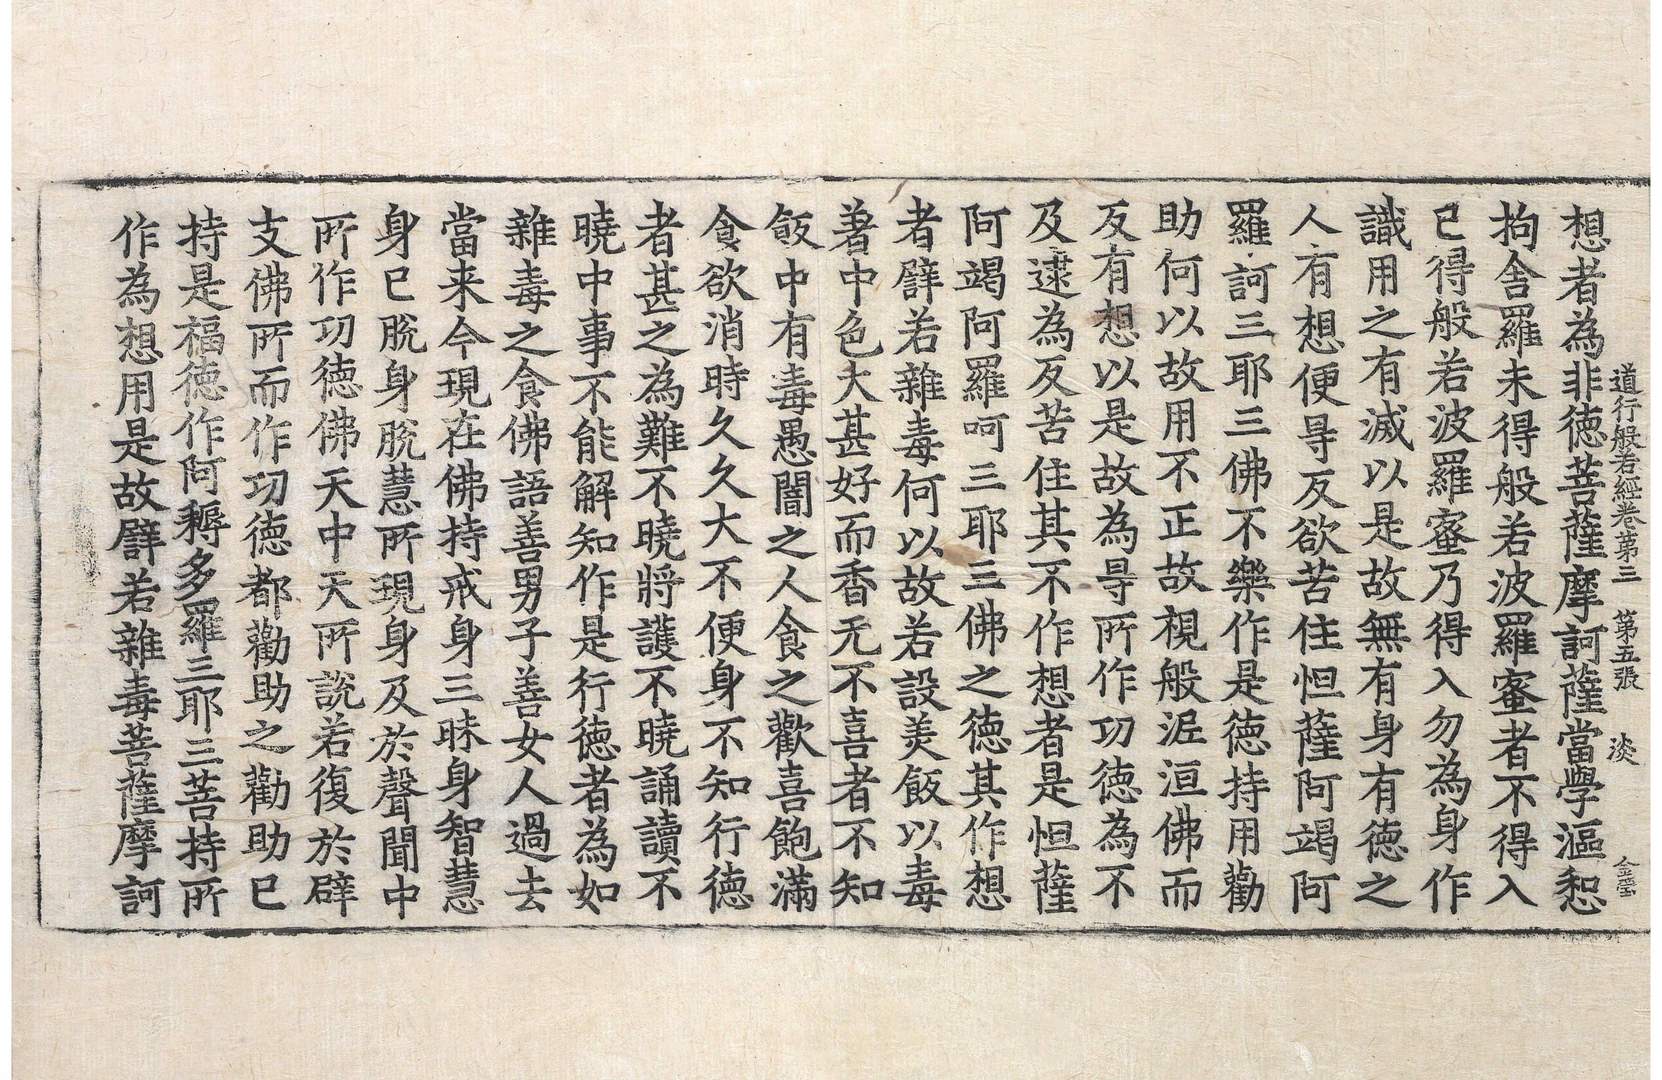 道行般若經卷第三 第五張 淡 金瑩
想者為非德菩薩摩訶薩當學漚惒
拘舍羅未得般若波羅蜜者不得入
已得般若波羅蜜乃得入勿為身作
識用之有滅以是故無有身有德之
人有想便㝵反欲苦住怛薩阿竭阿
羅訶三耶三佛不樂作是德持用勸
助何以故用不正故視般泥洹佛而
反有想以是故為㝵所作功德為不
及逮為反苦住其不作想者是怛薩
阿竭阿羅呵三耶三佛之德其作想
者譬若雜毒何以故若設美飯以毒
著中色大甚好而香无不喜者不知
飯中有毒愚闇之人食之歡喜飽滿
食欲消時久久大不便身不知行德
者甚之為難不曉將護不曉誦讀不
曉中事不能解知作是行德者為如
雜毒之食佛語善男子善女人過去
當来今現在佛持戒身三昧身智慧
身已脫身脫慧所現身及於聲聞中
所作功德佛天中天所說若復於辟
支佛所而作功德都勸助之勸助已
持是福德作阿耨多羅三耶三菩持所
作為想用是故譬若雜毒菩薩摩訶